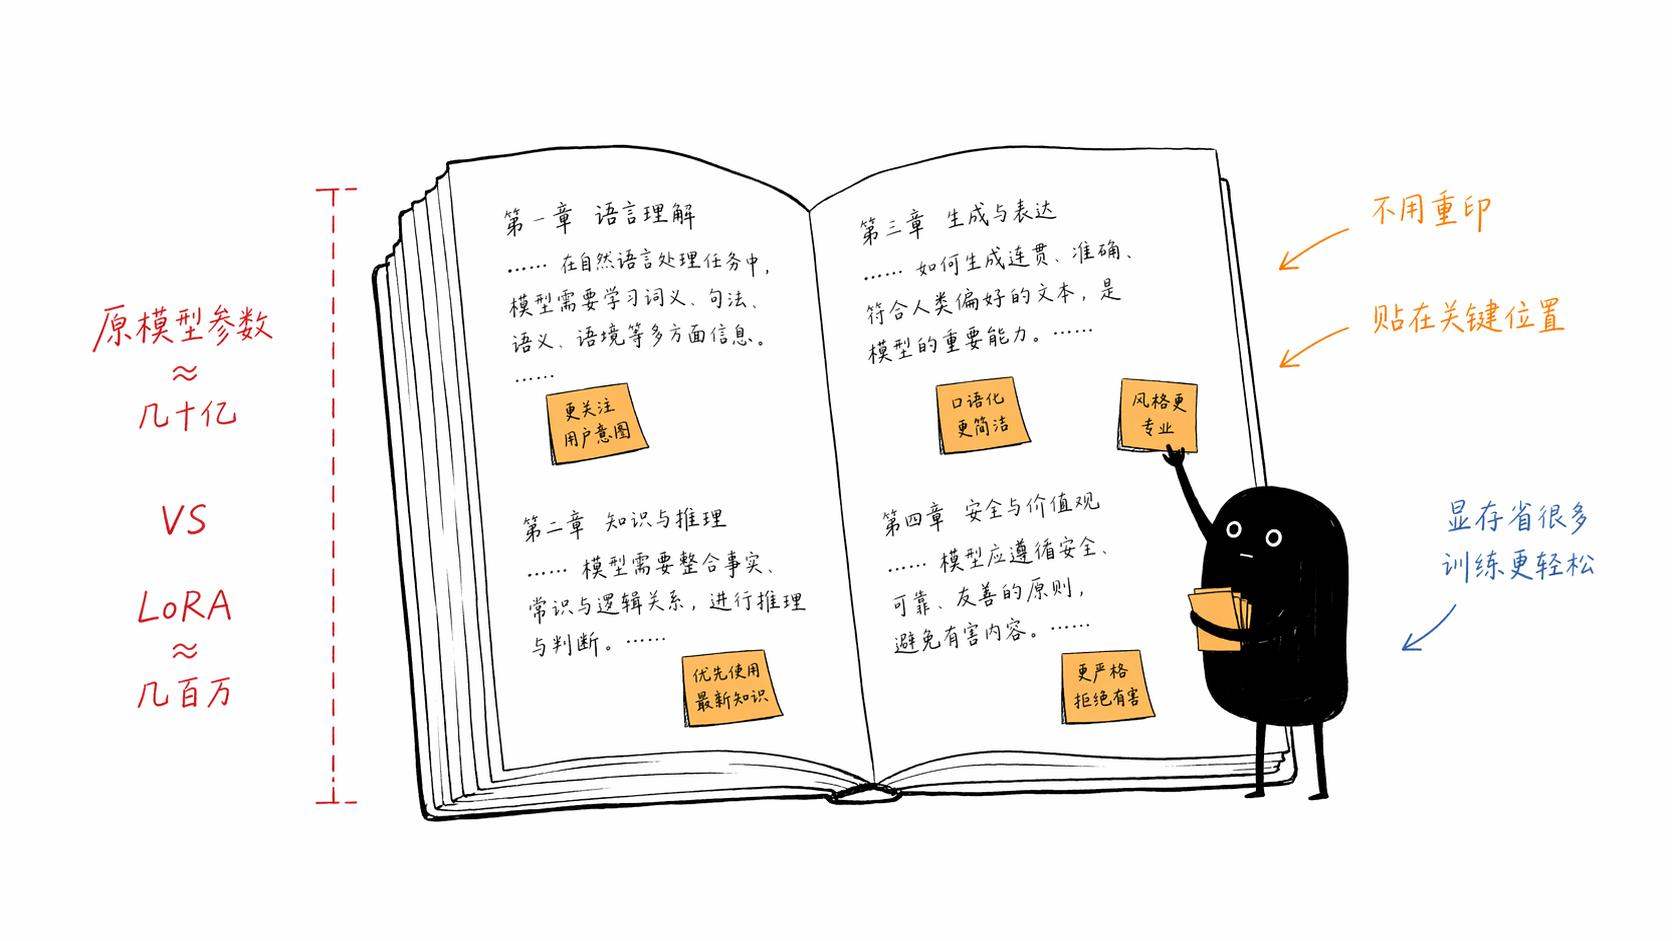 原模型参数
≈
几十亿
VS
LoRA
≈
几百万
第一章 语言理解
…… 在自然语言处理任务中，
模型需要学习词义、句法、
语义、语境等多方面信息。
……
更关注
用户意图
第二章 知识与推理
…… 模型需要整合事实、
常识与逻辑关系，进行推理
与判断。……
优先使用
最新知识
第三章 生成与表达
…… 如何生成连贯、准确、
符合人类偏好的文本，是
模型的重要能力。……
口语化
更简洁
风格更
专业
第四章 安全与价值观
…… 模型应遵循安全、
可靠、友善的原则，
避免有害内容。……
更严格
拒绝有害
不用重印
贴在关键位置
显存省很多
训练更轻松